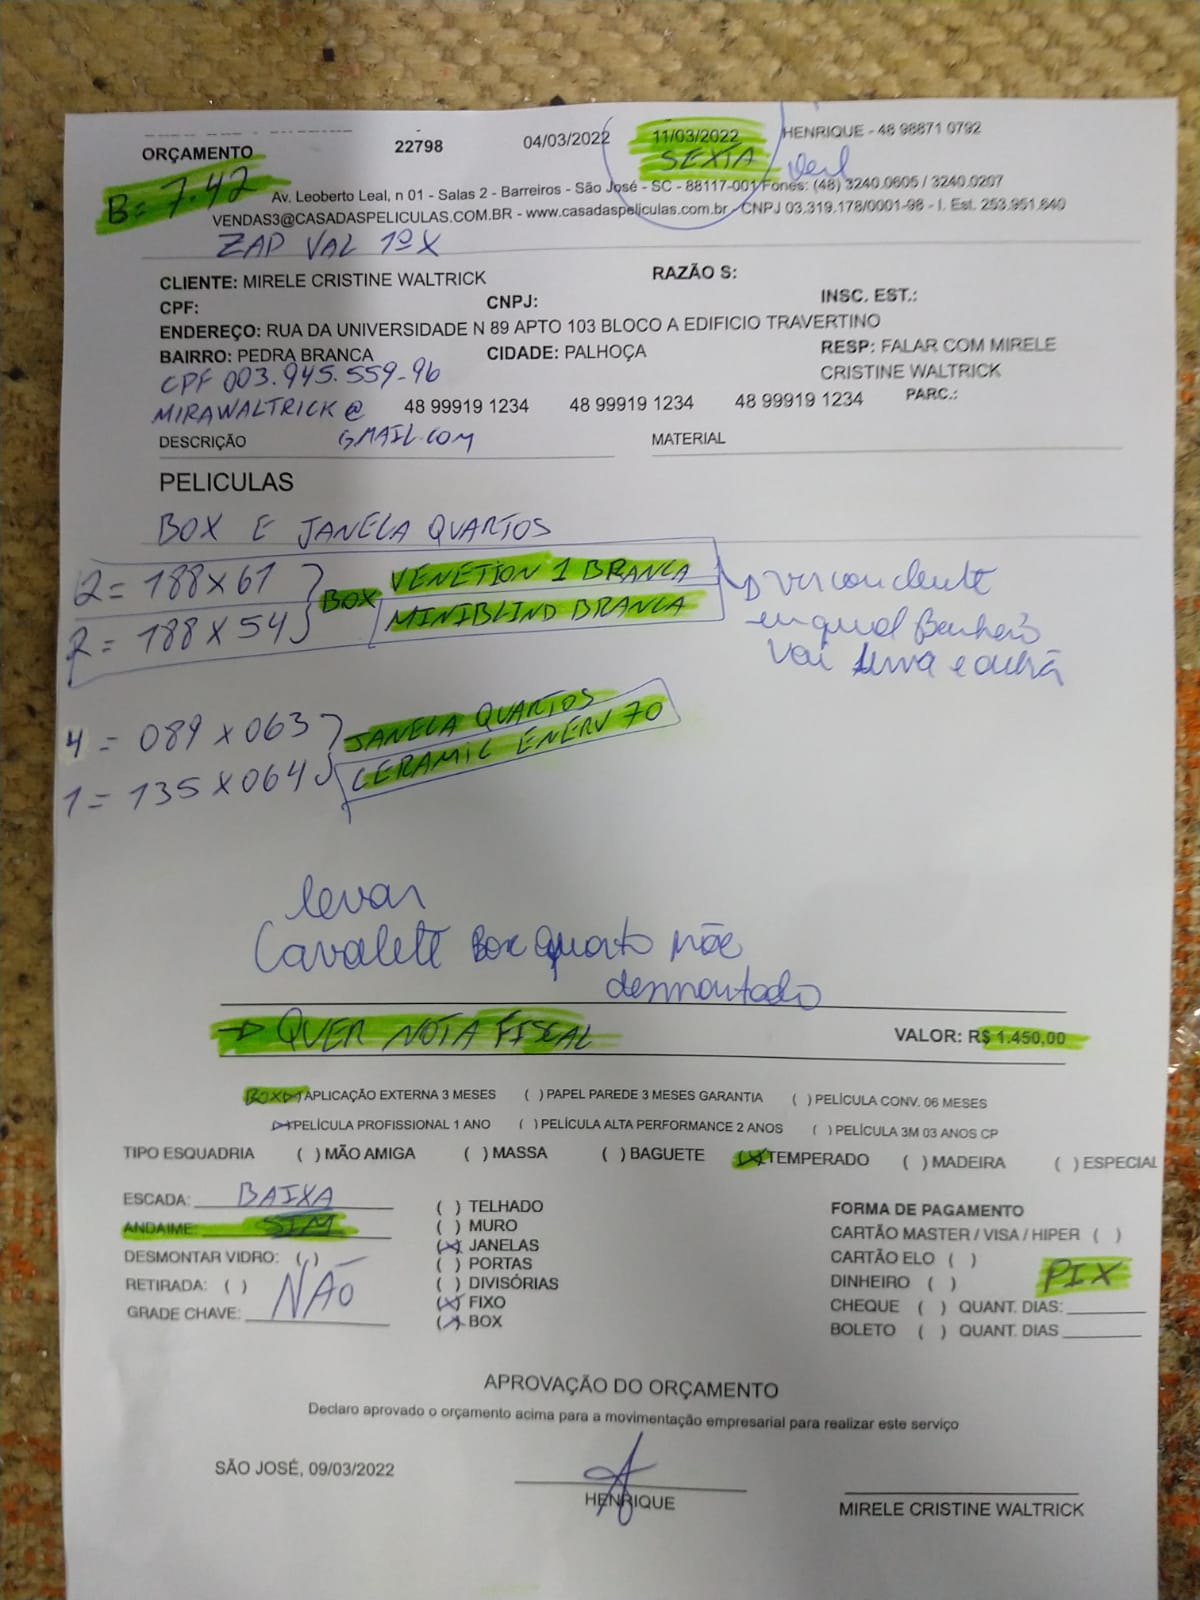 ORÇAMENTO 22798 04/03/2022 11/03/2022 HENRIQUE - 48 98871 0792
SEXTA
B= 7.42
Av. Leoberto Leal, n 01 - Salas 2 - Barreiros - São José - SC - 88117-001 Fones: (48) 3240.0605 / 3240.0207
VENDAS3@CASADASPELICULAS.COM.BR - www.casadaspeliculas.com.br - CNPJ 03.319.178/0001-98 - I. Est. 253.951.640
ZAP VAL 1º X
CLIENTE: MIRELE CRISTINE WALTRICK RAZÃO S:
CPF: CNPJ: INSC. EST.:
ENDEREÇO: RUA DA UNIVERSIDADE N 89 APTO 103 BLOCO A EDIFICIO TRAVERTINO
BAIRRO: PEDRA BRANCA CIDADE: PALHOÇA RESP: FALAR COM MIRELE
CRISTINE WALTRICK
CPF 003.945.559-96
MIRAWALTRICK@ 48 99919 1234 48 99919 1234 48 99919 1234 PARC.:
GMAIL.COM
DESCRIÇÃO MATERIAL
PELICULAS
BOX E JANELA QUARTOS
2= 188X61 BOX VENETION 1 BRANCA
2= 188X54 MINIBLIND BRANCA
vai uma e outra
4= 089X063 JANELA QUARTOS
1= 135X064 CERAMIC ENERV 70
levar
Cavalete Box quarto mãe
desmontado
→ QUER NOTA FISCAL VALOR: R$ 1.450,00
BOX APLICAÇÃO EXTERNA 3 MESES ( ) PAPEL PAREDE 3 MESES GARANTIA ( ) PELÍCULA CONV. 06 MESES
PELÍCULA PROFISSIONAL 1 ANO ( ) PELÍCULA ALTA PERFORMANCE 2 ANOS ( ) PELÍCULA 3M 03 ANOS CP
TIPO ESQUADRIA ( ) MÃO AMIGA ( ) MASSA ( ) BAGUETE (X) TEMPERADO ( ) MADEIRA ( ) ESPECIAL
ESCADA: BAIXA
ANDAIME: SIM
DESMONTAR VIDRO: ( )
RETIRADA: ( ) NÃO
GRADE CHAVE:
( ) TELHADO
( ) MURO
(X) JANELAS
( ) PORTAS
( ) DIVISÓRIAS
(X) FIXO
(X) BOX
FORMA DE PAGAMENTO
CARTÃO MASTER / VISA / HIPER ( )
CARTÃO ELO ( )
DINHEIRO ( ) PIX
CHEQUE ( ) QUANT. DIAS:
BOLETO ( ) QUANT. DIAS
APROVAÇÃO DO ORÇAMENTO
Declaro aprovado o orçamento acima para a movimentação empresarial para realizar este serviço
SÃO JOSÉ, 09/03/2022
HENRIQUE
MIRELE CRISTINE WALTRICK